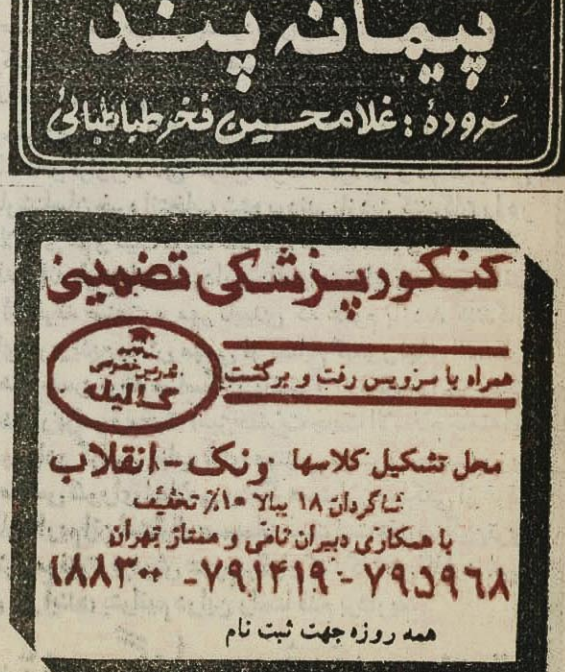 پیمانه پند
سروده : غلامحسین فخر طباطبائی
کنکور پزشکی تضمینی
همراه با سرویس رفت و برگشت
تدریس خصوصی
گالیله
محل تشکیل کلاسها ونک - انقلاب
شاگردان ۱۸ ببالا ۱۰٪ تخفیف
با همکاری دبیران نامی و ممتاز تهران
۷۹۵۹۶۸ - ۷۹۱۴۱۹ - ۱۸۸۳۰۰
همه روزه جهت ثبت نام